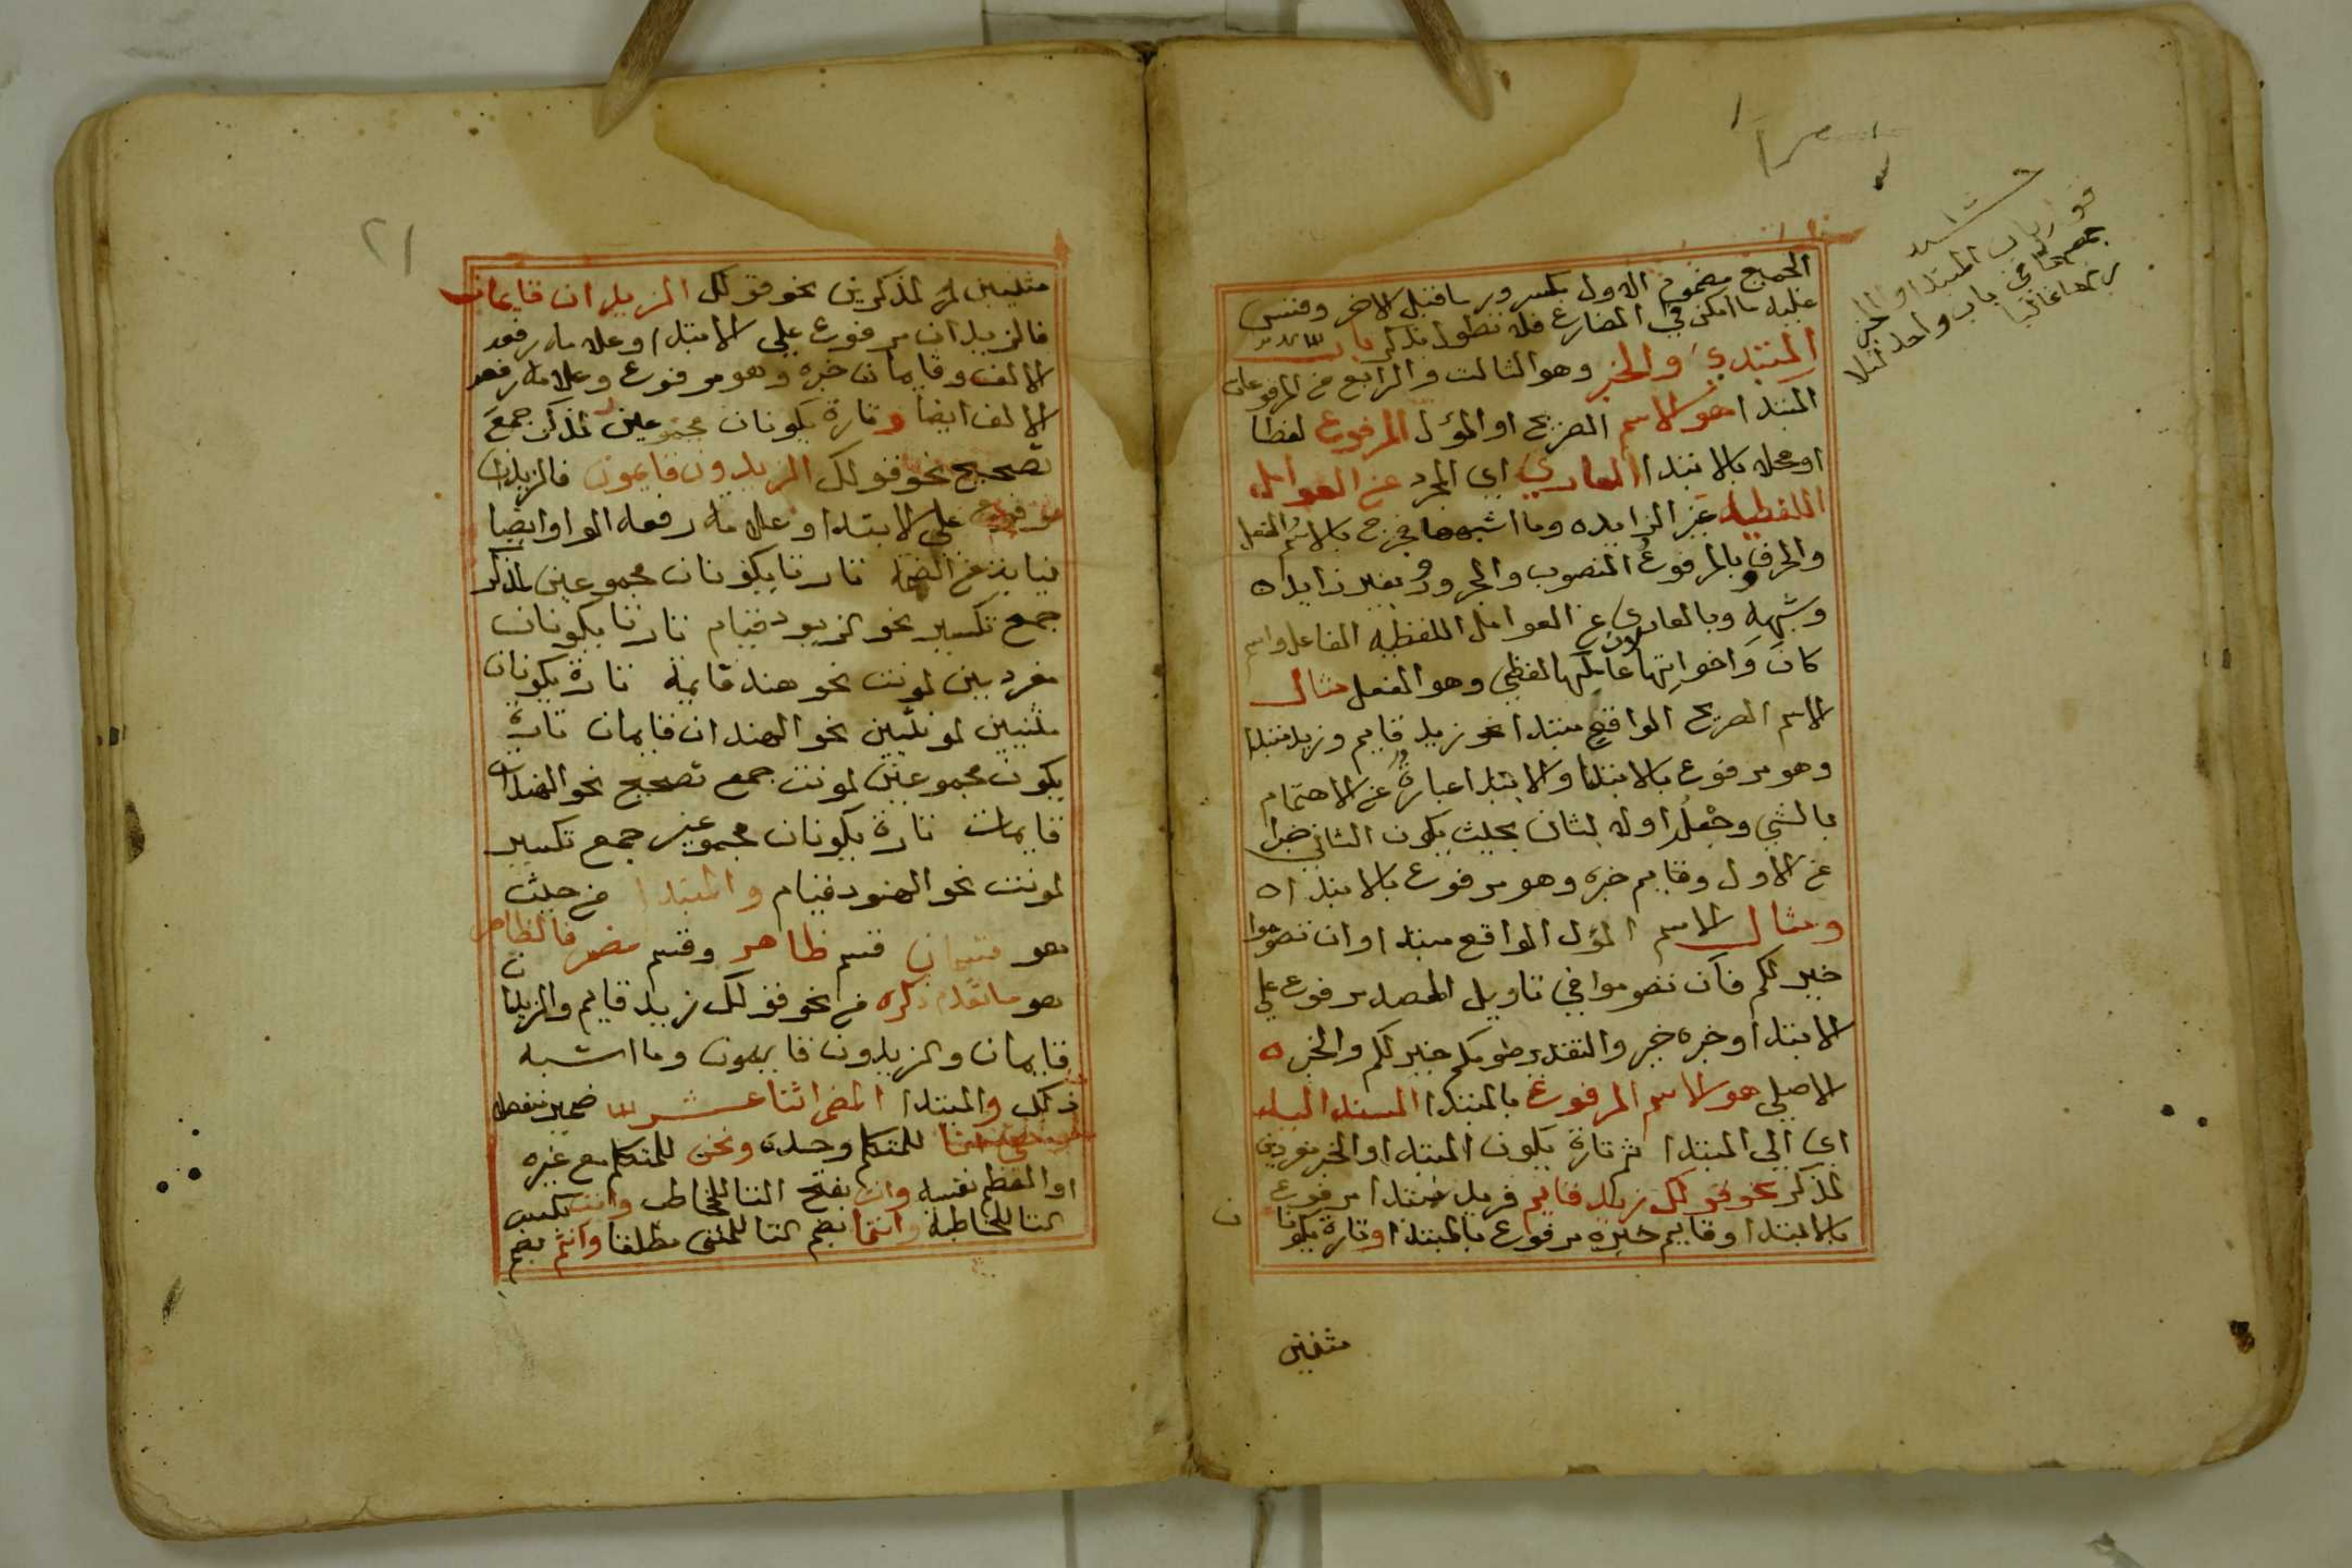 الجميع مضموم الاول مكسور ما قبل الاخر وقس
عليه ما امكن في المضارع فلا نطول بذكره باب
المبتدي والخبر وهو الثالث والرابع من المرفوعات
المبتدا هو الاسم الصريح او المؤل المرفوع لفظا
او محلا بالابتدا العاري اي المجرد عن العوامل
اللفظيه غير الزايده وما اشبهها فخرج بالاسم الفعل
والحرف وبالمرفوع المنصوب والمجرور بغير زايد ه
وشبهه وبالعاري عن العوامل اللفظيه الفاعل واسم
كان واخواتها لان عاملها لفظي وهو الفعل مثال
الاسم الصريح الواقع مبتدا نحو زيد قايم فزيد مبتدا
وهو مرفوع بالابتدا والابتدا عبارة عن الاهتمام
بالشي وجعله اولا لثان بحيث يكون الثاني خبرا
عن الاول وقايم خبره وهو مرفوع بالابتدا ه
ومثال الاسم المؤل الواقع مبتدا وان تصوموا
خير لكم فان تصوموا في تاويل المصدر مرفوع على
الابتدا وخبره خير والتقدير صومكم خير لكم والخبر ه
الاصلي هو الاسم المرفوع بالمبتدا المسند اليه
اي الي المبتدا ثم تارة يكون المبتدا والخبر مفردين
لمذكر نحو قولك زيد قايم فزيد مبتدا مرفوع
بالابتدا وقايم خبره مرفوع بالمبتدا وتارة يكونا
ن
مثنيين
باب المبتدا والخبر
جمعهما في باب واحد لتلا
زمهما غالبا
٢١
مثنيين لمذكرين نحو قولك الزيدان قايمان
فالزيدان مرفوع على الابتدا وعلامه رفعه
الالف وقايمان خبره وهو مرفوع وعلامة رفعه
الالف ايضا وتارة يكونان مجموعين لمذكر جمع
تصحيح نحو قولك الزيدون قايمون فالزيدون
مرفوع على الابتدا وعلامة رفعه الواو ايضا
نيابة عن الضمة تارتا يكونان مجموعين لمذكر
جمع تكسير نحو الزيود قيام تارتا يكونان
مفردين لمونث نحو هند قايمة تارة يكونان
مثنيين لمونثين نحو الهندان قايمان تارة
يكون مجموعين لمونث جمع تصحيح نحو الهندات
قايمات تارة يكونان مجموعين جمع تكسير
لمونث نحو الهنود قيام والمبتدا من حيث
هو قسمان قسم ظاهر وقسم مضمر فالظاهر
هو ما تقدم ذكره من نحو قولك زيد قايم والزيدان
قايمان والزيدون قايمون وما اشبه
ذلك والمبتدا المضمر اثنا عشر ضمير منفصله
للمتكلم وحده ونحن للمتكلم مع غيره
او المعظم نفسه وانت بفتح التا للمخاطب وانت بكسر
التا للمخاطبة وانتما بضم التا للمثنى مطلقا وانتم بضم